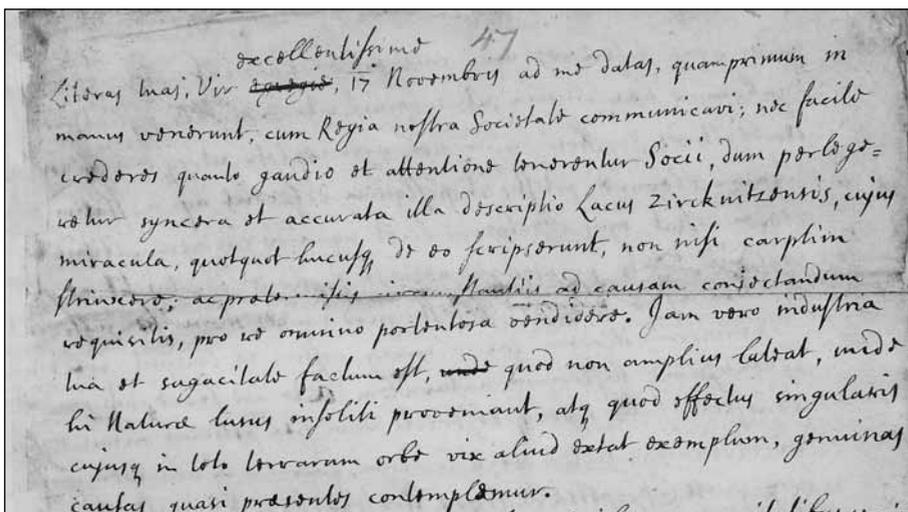 47
excellentissime
Literas tuas, Vir egregie, 17 Novembris ad me datas, quamprimum in
manus venerunt, cum Regia nostra Societate communicavi; nec facile
crederes quanto gaudio et attentione tenerentur Socii, dum perlege=
retur syncera et accurata illa descriptio Lacus Zircknitzensis, cujus
miracula, quotquot hucusq de eo scripserunt, non nisi carptim
strinxere; ac prætermissis circumstantiis ad causam conjectandum
requisitis, pro re omnino portentosa vendidere. Jam vero industria
tua et sagacitate factum est, unde quod non amplius lateat, unde
hi Naturæ lusus insoliti proveniant, atq quod effectus singularis
cujusq in toto terrarum orbe vix aliud extat exemplum, genuinas
causas quasi præsentes contemplemur.